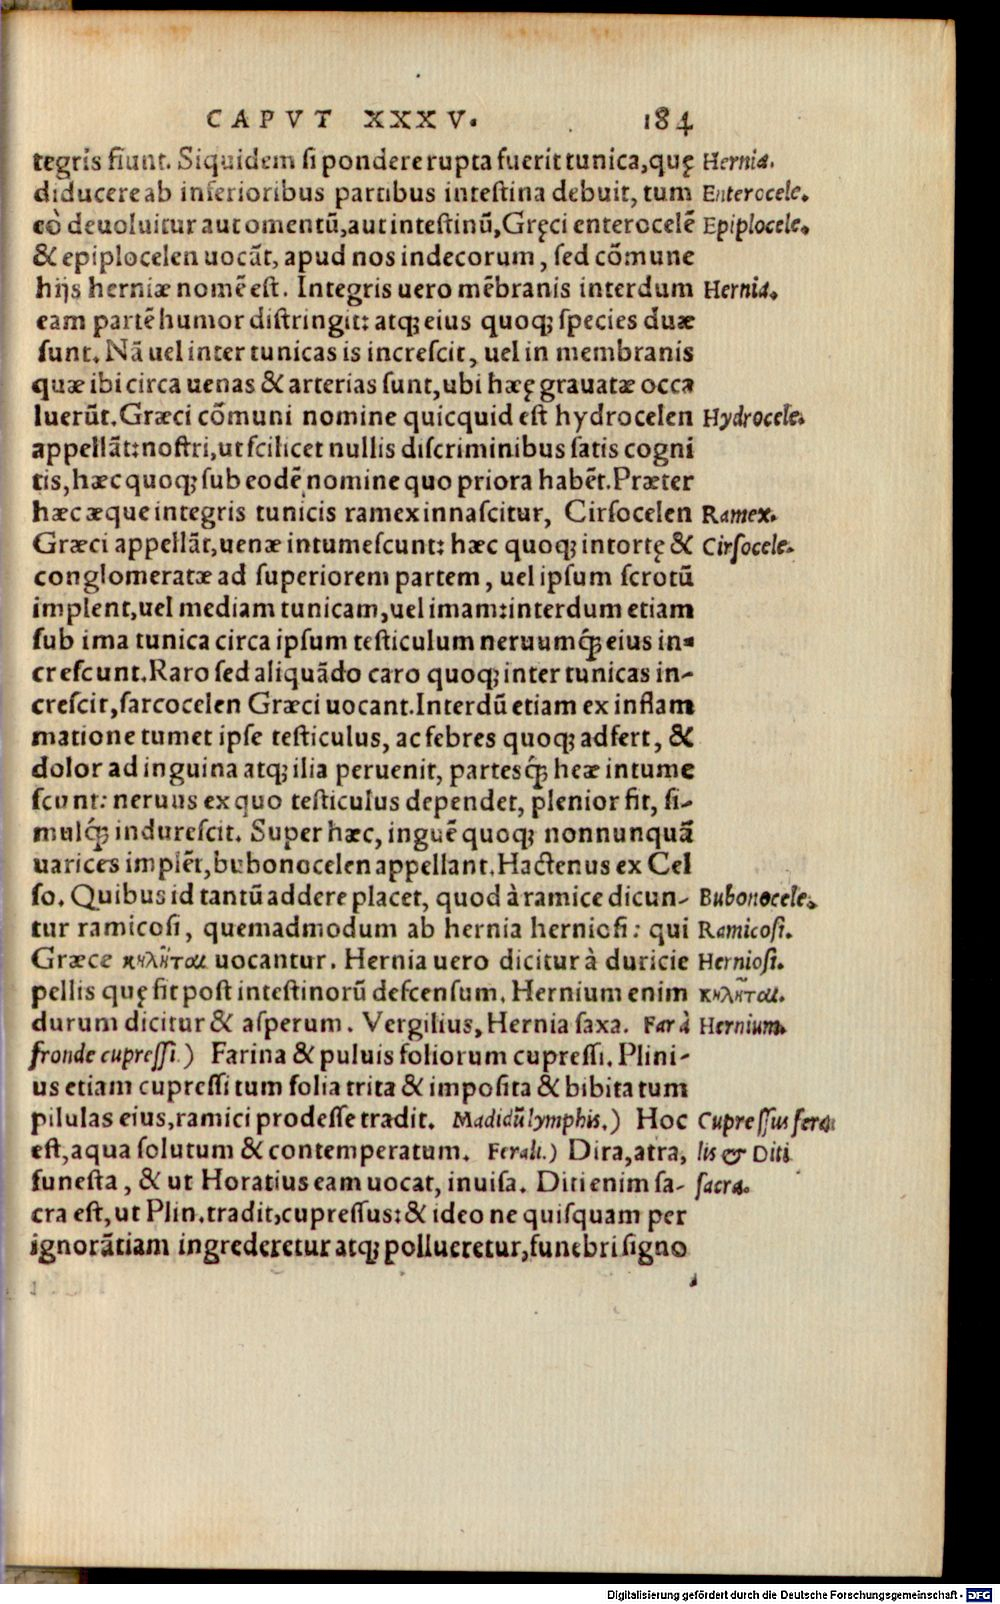 CAPVT XXXV. 184
tegris fiunt. Siquidem si pondere rupta fuerit tunica, quę Hernia.
diducere ab inferioribus partibus intestina debuit, tum Enterocele.
eò deuoluitur aut omentũ, aut intestinũ, Gręci enterocelẽ Epiplocele.
& epiplocelen uocãt, apud nos indecorum, sed cõmune
hijs herniæ nomẽ est. Integris uero mẽbranis interdum Hernia.
eam partẽ humor distringit: atq; eius quoq; species duæ
sunt. Nã uel inter tunicas is increscit, uel in membranis
quæ ibi circa uenas & arterias sunt, ubi hæę grauatæ occa
luerũt. Græci cõmuni nomine quicquid est hydrocelen Hydrocele.
appellãt: nostri, ut scilicet nullis discriminibus satis cogni
tis, hæc quoq; sub eodẽ nomine quo priora habẽt. Præter
hæc æque integris tunicis ramex innascitur, Cirsocelen Ramex.
Græci appellãt, uenæ intumescunt: hæc quoq; intortę & Cirsocele.
conglomeratæ ad superiorem partem, uel ipsum scrotũ
implent, uel mediam tunicam, uel imam: interdum etiam
sub ima tunica circa ipsum testiculum neruumq́; eius in-
crescunt. Raro sed aliquãdo caro quoq; inter tunicas in-
crescit, sarcocelen Græci uocant. Interdũ etiam ex inflam
matione tumet ipse testiculus, ac febres quoq; adfert, &
dolor ad inguina atq; ilia peruenit, partesq́; heæ intume
scunt: neruus ex quo testiculus dependet, plenior fit, si-
mulq́; indurescit. Super hæc, inguẽ quoq; nonnunquã
uarices implẽt, bubonocelen appellant. Hactenus ex Cel
so. Quibus id tantũ addere placet, quod à ramice dicun- Bubonocele.
tur ramicosi, quemadmodum ab hernia herniosi: qui Ramicosi.
Græce κηλῆται uocantur. Hernia uero dicitur à duricie Herniosi.
pellis quę fit post intestinorũ descensum. Hernium enim κηλῆται.
durum dicitur & asperum. Vergilius, Hernia saxa. Far à Hernium.
fronde cupressi.) Farina & puluis foliorum cupressi. Plini-
us etiam cupressi tum folia trita & imposita & bibita tum
pilulas eius, ramici prodesse tradit. Madidũ lymphis.) Hoc Cupressus fera
est, aqua solutum & contemperatum. Ferali.) Dira, atra, lis & Diti
funesta, & ut Horatius eam uocat, inuisa. Diti enim sa- sacra.
cra est, ut Plin. tradit, cupressus: & ideo ne quisquam per
ignorãtiam ingrederetur atq; pollueretur, funebri signo
Digitalisierung gefördert durch die Deutsche Forschungsgemeinschaft - DFG